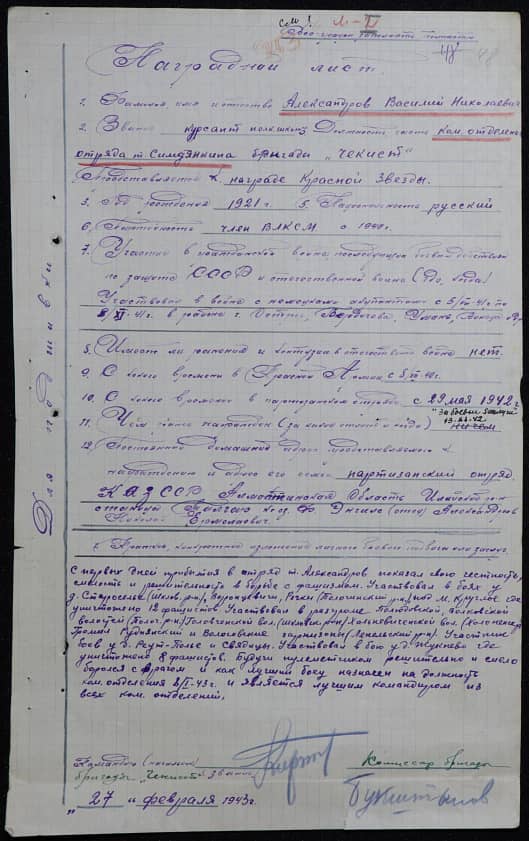 см!
48
Наградной лист
1. Фамилия имя и отчество Александров Василий Николаевич
2. Звание курсант полкшколы Должность часть ком. отделения
отряда т. Симдянкина бригады „Чекист“
Представляется к награде Красной Звезды.
3. Год рождения 1921 г. 5. Национальность русский
6. Партийность член ВЛКСМ с
7. Участие в гражданской войне, последующих боевых действиях
по защите СССР и отечественной войне (где, когда)
Участвовал в войне с немецкими оккупантами с 5/VI-41г. по
в районе г. Бердичева, Умань,
8. Имеет ли ранения и контузии в отечественной войне нет.
9. С какого времени в Красной Армии с
10. С какого времени в партизанском отряде с 29 мая 1942 г.
11. Чем ранее награжден (за какие отличия и когда)
"За боевые заслуги"
12. Постоянный домашний адрес представляемого к
награждению и адрес его семьи партизанский отряд.
КАЗ ССР Алмаатинская Область Илийский р-он
станица (отец) Александров
Николай Ермолаевич
Для подшивки
I. Краткое, конкретное изложение личного боевого подвига или заслуг.
С первых дней прибытия в отряд т. Александров показал свою честность,
смелость и решительность в борьбе с фашизмом. Участвовал в боях у
д. Староселье (Шклов. р-н), Воронцевичи, Речки (Толочинский р-н), под М. Круглое где
уничтожено 12 фашистов. Участвовал в разгроме
волостей (Толоч. р-н)
Громил Руднянский и гарнизоны (Лепельский р-н). Участник
боев у б. Реут-Полье и Свядицы. Участвовал в бою у д. Жукнево где
уничтожено 8 фашистов. Будучи пулеметчиком решительно и смело
боролся с врагом и как лучший боец назначен на должность
ком. отделения 8/I-43г. и является лучшим командиром из
всех ком. отделений.
Командир (начальник)
бригады „Чекист“ звание
Комиссар бригады
„27“ февраля 1943г.